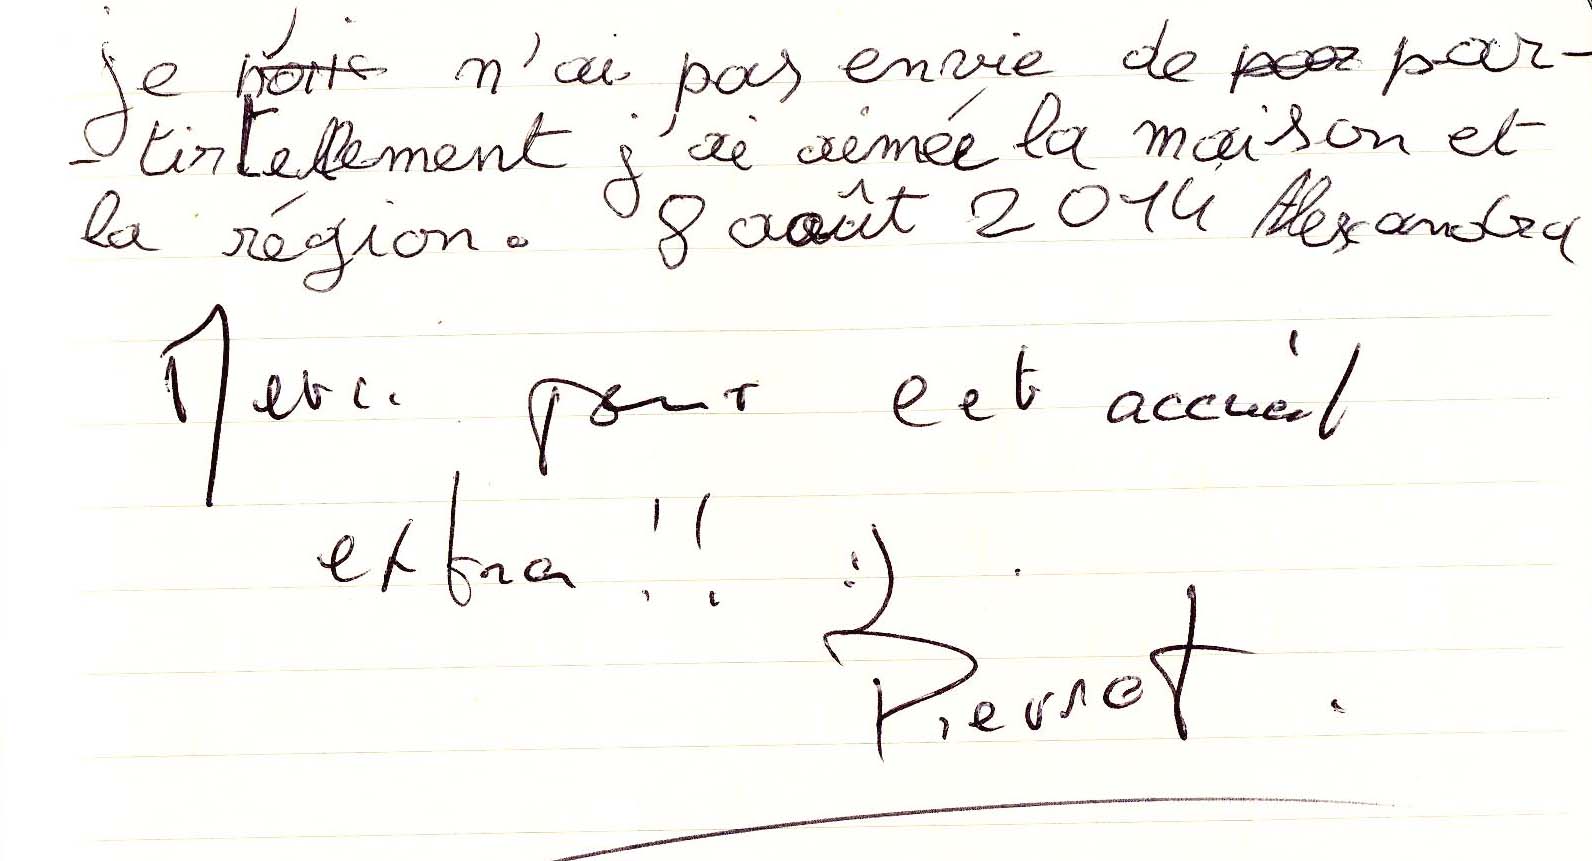 je n'ai pas envie de par-
-tir tellement j'ai aimée la maison et
la région. 8 août 2014 Alexandra
Merci pour cet accueil
extra !! :)
Pierrot.